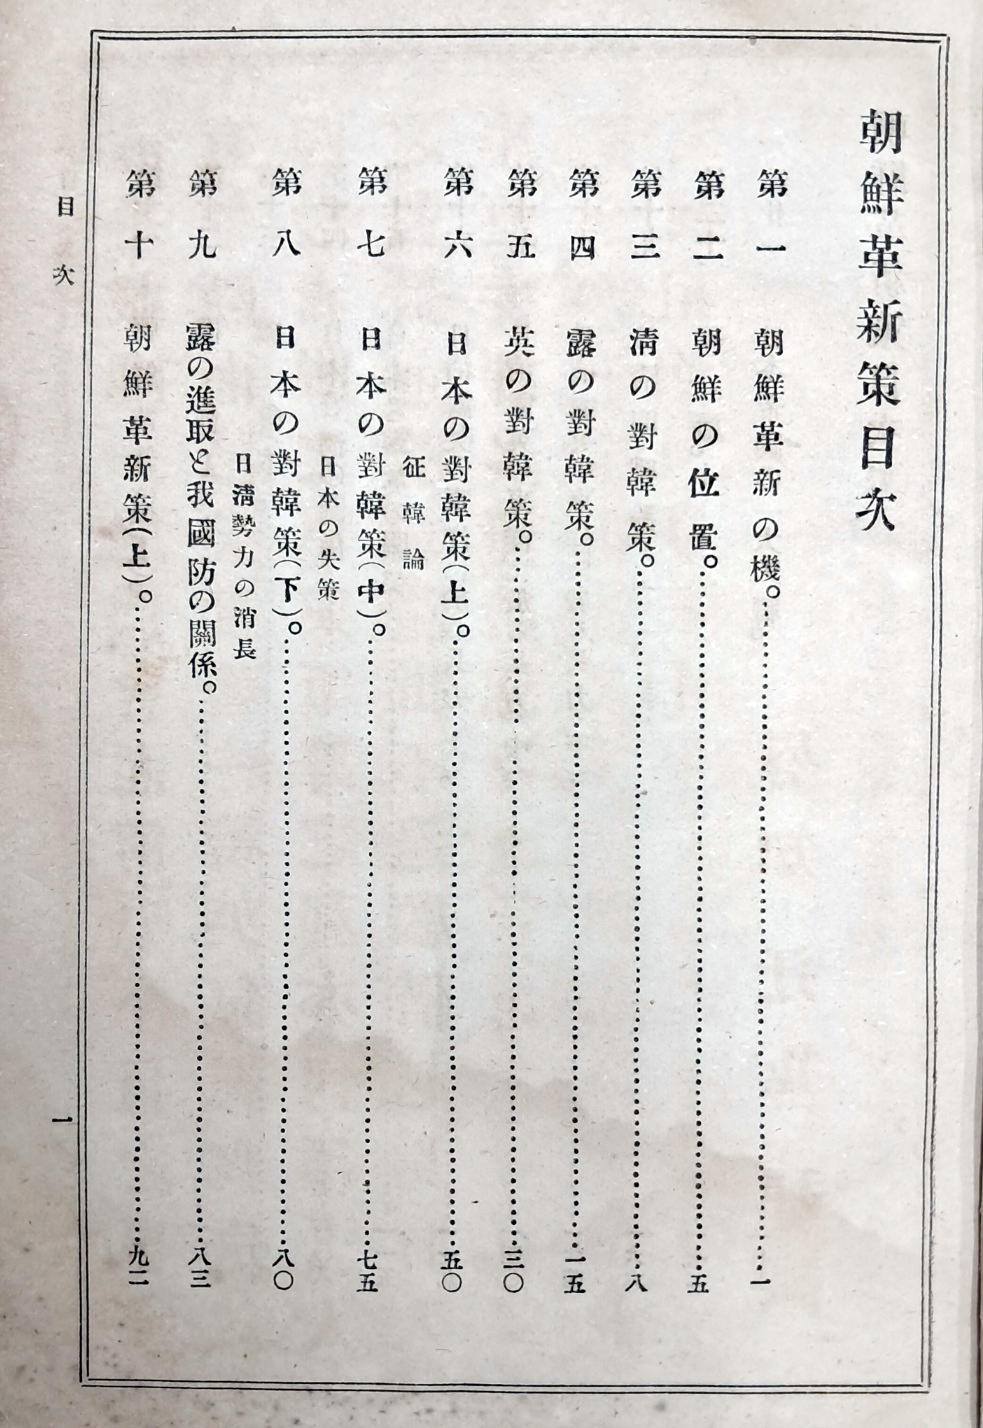 朝鮮革新策目次
第一　朝鮮革新の機。……………………一
第二　朝鮮の位置。……………………五
第三　淸の對韓策。……………………八
第四　露の對韓策。……………………一五
第五　英の對韓策。……………………三〇
第六　日本の對韓策(上)。……………………五〇
征韓論
第七　日本の對韓策(中)。……………………七五
日本の失策
第八　日本の對韓策(下)。……………………八〇
日淸勢力の消長
第九　露の進取と我國防の關係。……………………八三
第十　朝鮮革新策(上)。……………………九二
目次　一